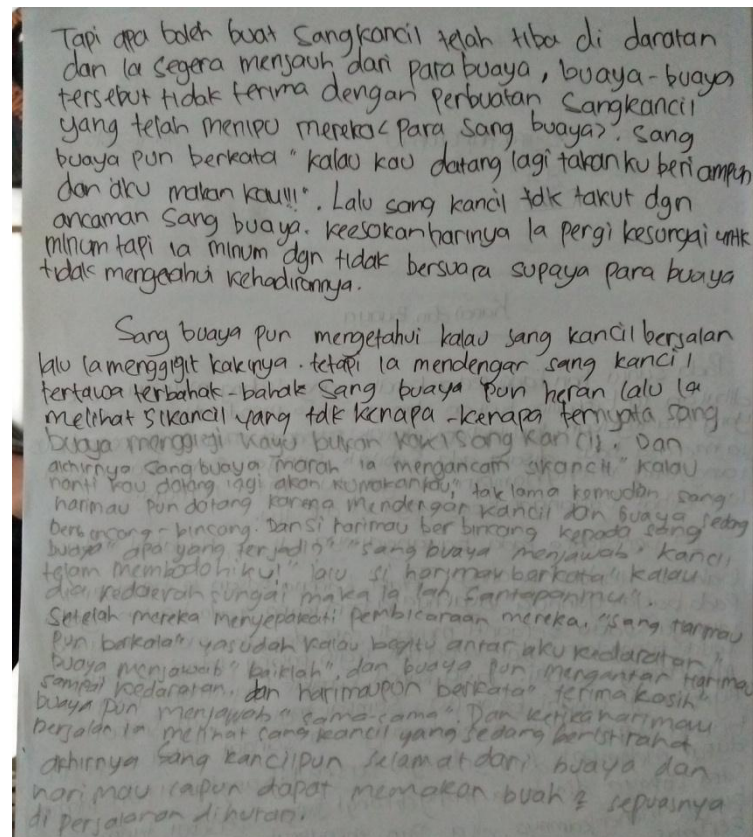 Tapi apa boleh buat Sangkancil telah tiba di daratan
dan ia segera menjauh dari para buaya, buaya-buaya
tersebut tidak terima dengan Perbuatan Sangkancil
yang telah menipu mereka<para sang buaya>. Sang
buaya pun berkata "kalau kau datang lagi takan ku beri ampun
dan aku makan kau!!!". Lalu sang kancil tdk takut dgn
ancaman Sang buaya. keesokan harinya Ia pergi kesungai untk
minum tapi ia minum dgn tidak bersuara supaya para buaya
tidak mengetahui kehadirannya.
Sang buaya pun mengetahui kalau sang kancil berjalan
lalu ia menggigit kakinya. tetapi ia mendengar sang kancil
tertawa terbahak-bahak Sang buaya pun heran lalu ia
melihat sikancil yang tdk kenapa-kenapa ternyata sang
buaya menggigi kayu bukan kaki sang kancil. Dan
achirnya sang buaya marah ia mengancam sikancil "kalau
nanti kau datang lagi akan kumakankau," tak lama kemudian sang
harimau pun datang karena mendengar kancil dan buaya sedag
berbincang-bincang. Dan si harimau berbincang kepada sang
buaya "apa yang terjadi?" "sang buaya menjawab" kancil
telam membodohiku!" lalu si harimau berkata "kalau
dia kedaerah sungai maka ia lah santapanmu".
Setelah mereka menyepakati pembicaraan mereka. "sang harimau
pun berkata" yasudah kalau begitu antar aku kedaratan"
buaya menjawab "baiklah", dan buaya pun mengantar harimau
sampai kedaratan, dan harimaupun berkata" terima kasih"
buaya pun menjawab "sama-sama". Dan ketika harimau
berjalan ia melihat sang kancil yang sedang beristirahat
achirnya sang kancilpun selamat dari buaya dan
harimau iapun dapat memakan buah2 sepuasnya
di perjalanan dihutan.